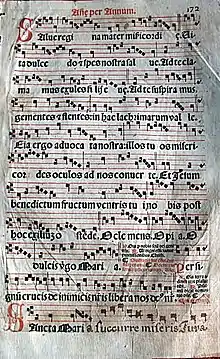 Añe per Annum. 172
Salueregi na matermisericordi e. Ui
ta dulce do z spes nostra sal ue. Ad te cla
ma mus exules filij e ue. Ad te suspira mus.
gementes z flentes in hac lachrimarum val le.
Eia ergo aduoca ta nostra illos tu os miseri
cor des oculos ad nos conuer te. Et Jesum
benedictum fructum ventris tu i no bis post
hoc exilium o stēde. O clemens. O pi a. O
dulcis virgo Mari a.
Per si
gnū crucis de inimicis nr̄is libera nos de' nr̄
Sancta Mari a succurre miseris Juva